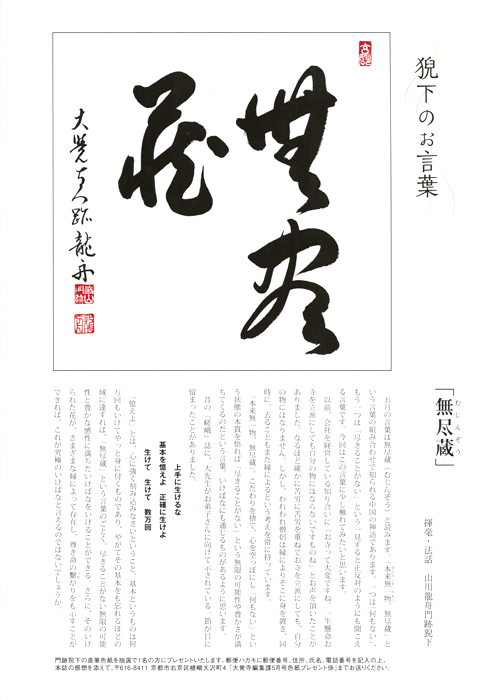 猊下のお言葉
無尽
蔵
大覚寺門跡龍舟
「無尽蔵」
むじんぞう
揮毫・法話　山川龍舟門跡猊下
五月の言葉は無尽蔵（むじんぞう）と読みます。「本来無一物、無尽蔵」と
いう言葉の組み合わせで知られる中国の禅語であります。一つは「何もない」、
もう一つは「尽きることがない」という一見すると正反対のようにも聞こえ
る言葉です。今回はこの言葉に少々触れてみたいと思います。
以前、会社を経営している知り合いに「お寺って大変ですね。一生懸命お
寺を立派にしても自分の物にはならないですものね」とお声を頂いたことが
ありました。なるほど確かに苦労に苦労を重ねてお寺を立派にしても、自分
の物にはなりません。しかし、われわれ僧侶は縁によりそこに身を置き、同
時に、去ることもまた縁によるという考えを常に持っています。
「本来無一物、無尽蔵」。こだわりを捨て、心を空っぽにし「何もない」とい
う状態の本質を悟れば「尽きることがない」という無限の可能性や豊かさが満
ちてくるのだという言葉。いけばなにも通じるものがあるように思います。
昔の「嵯峨」誌に、大先生がお弟子さんに向けて示されている一節が目に
留まったことがありました。
上手に生けるな
基本を憶えよ　正確に生けよ
生けて　生けて　数万回
「憶えよ」とは、心に強く刻み込みなさいということ。基本というものは何
万回もいけてやっと身に付くものであり、やがてその基本をも忘れるほどの
域に達すれば、「無尽蔵」という言葉のごとく、尽きることがない無限の可能
性と豊かな感性に満ちたいけばなをいけることができる。さらに、そのいけ
られた花が、さまざまな縁によって存在し、尊き命の繋がりをも示すことが
できれば、これが究極のいけばなと言えるのではないでしょうか。
門跡猊下の直筆色紙を抽選で1名の方にプレゼントいたします。郵便ハガキに郵便番号、住所、氏名、電話番号を記入の上、
本誌の感想を添えて、〒616-8411 京都市右京区嵯峨大沢町4「大覚寺編集課5月号色紙プレゼント係」までお送りください。